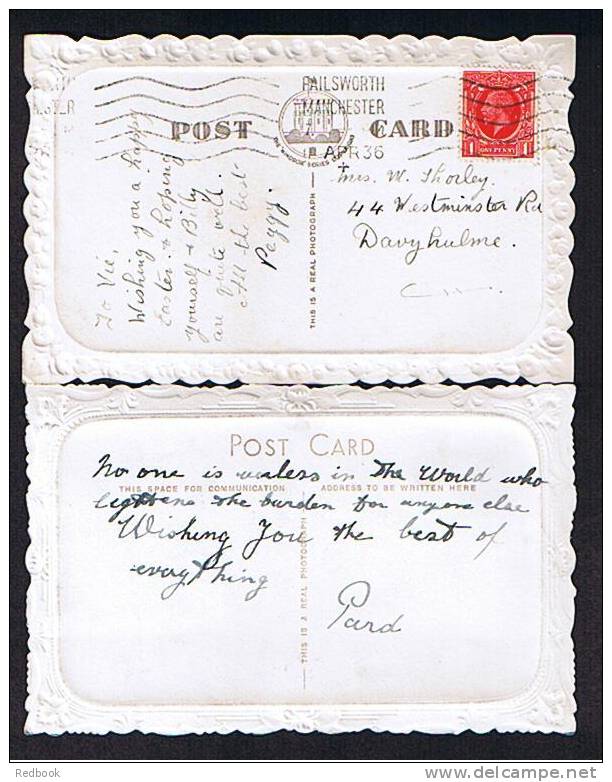 FAILSWORTH
MANCHESTER
APR 36
POST CARD
ONE PENNY
1 1
To Vie,
Wishing you a happy
Easter & hoping
yourself & Billy
are quite well.
All the best
Peggy.
THIS IS A REAL PHOTOGRAPH
Mrs. W. Thorley.
44 Westminster Rd
Davyhulme.
POST CARD
THIS SPACE FOR COMMUNICATION ADDRESS TO BE WRITTEN HERE
No one is useless in The World who
lightens the burden for anyone else
Wishing You the best of
everything
Pard
THIS IS A REAL PHOTOGRAPH
Redbook
www.delcampe.net